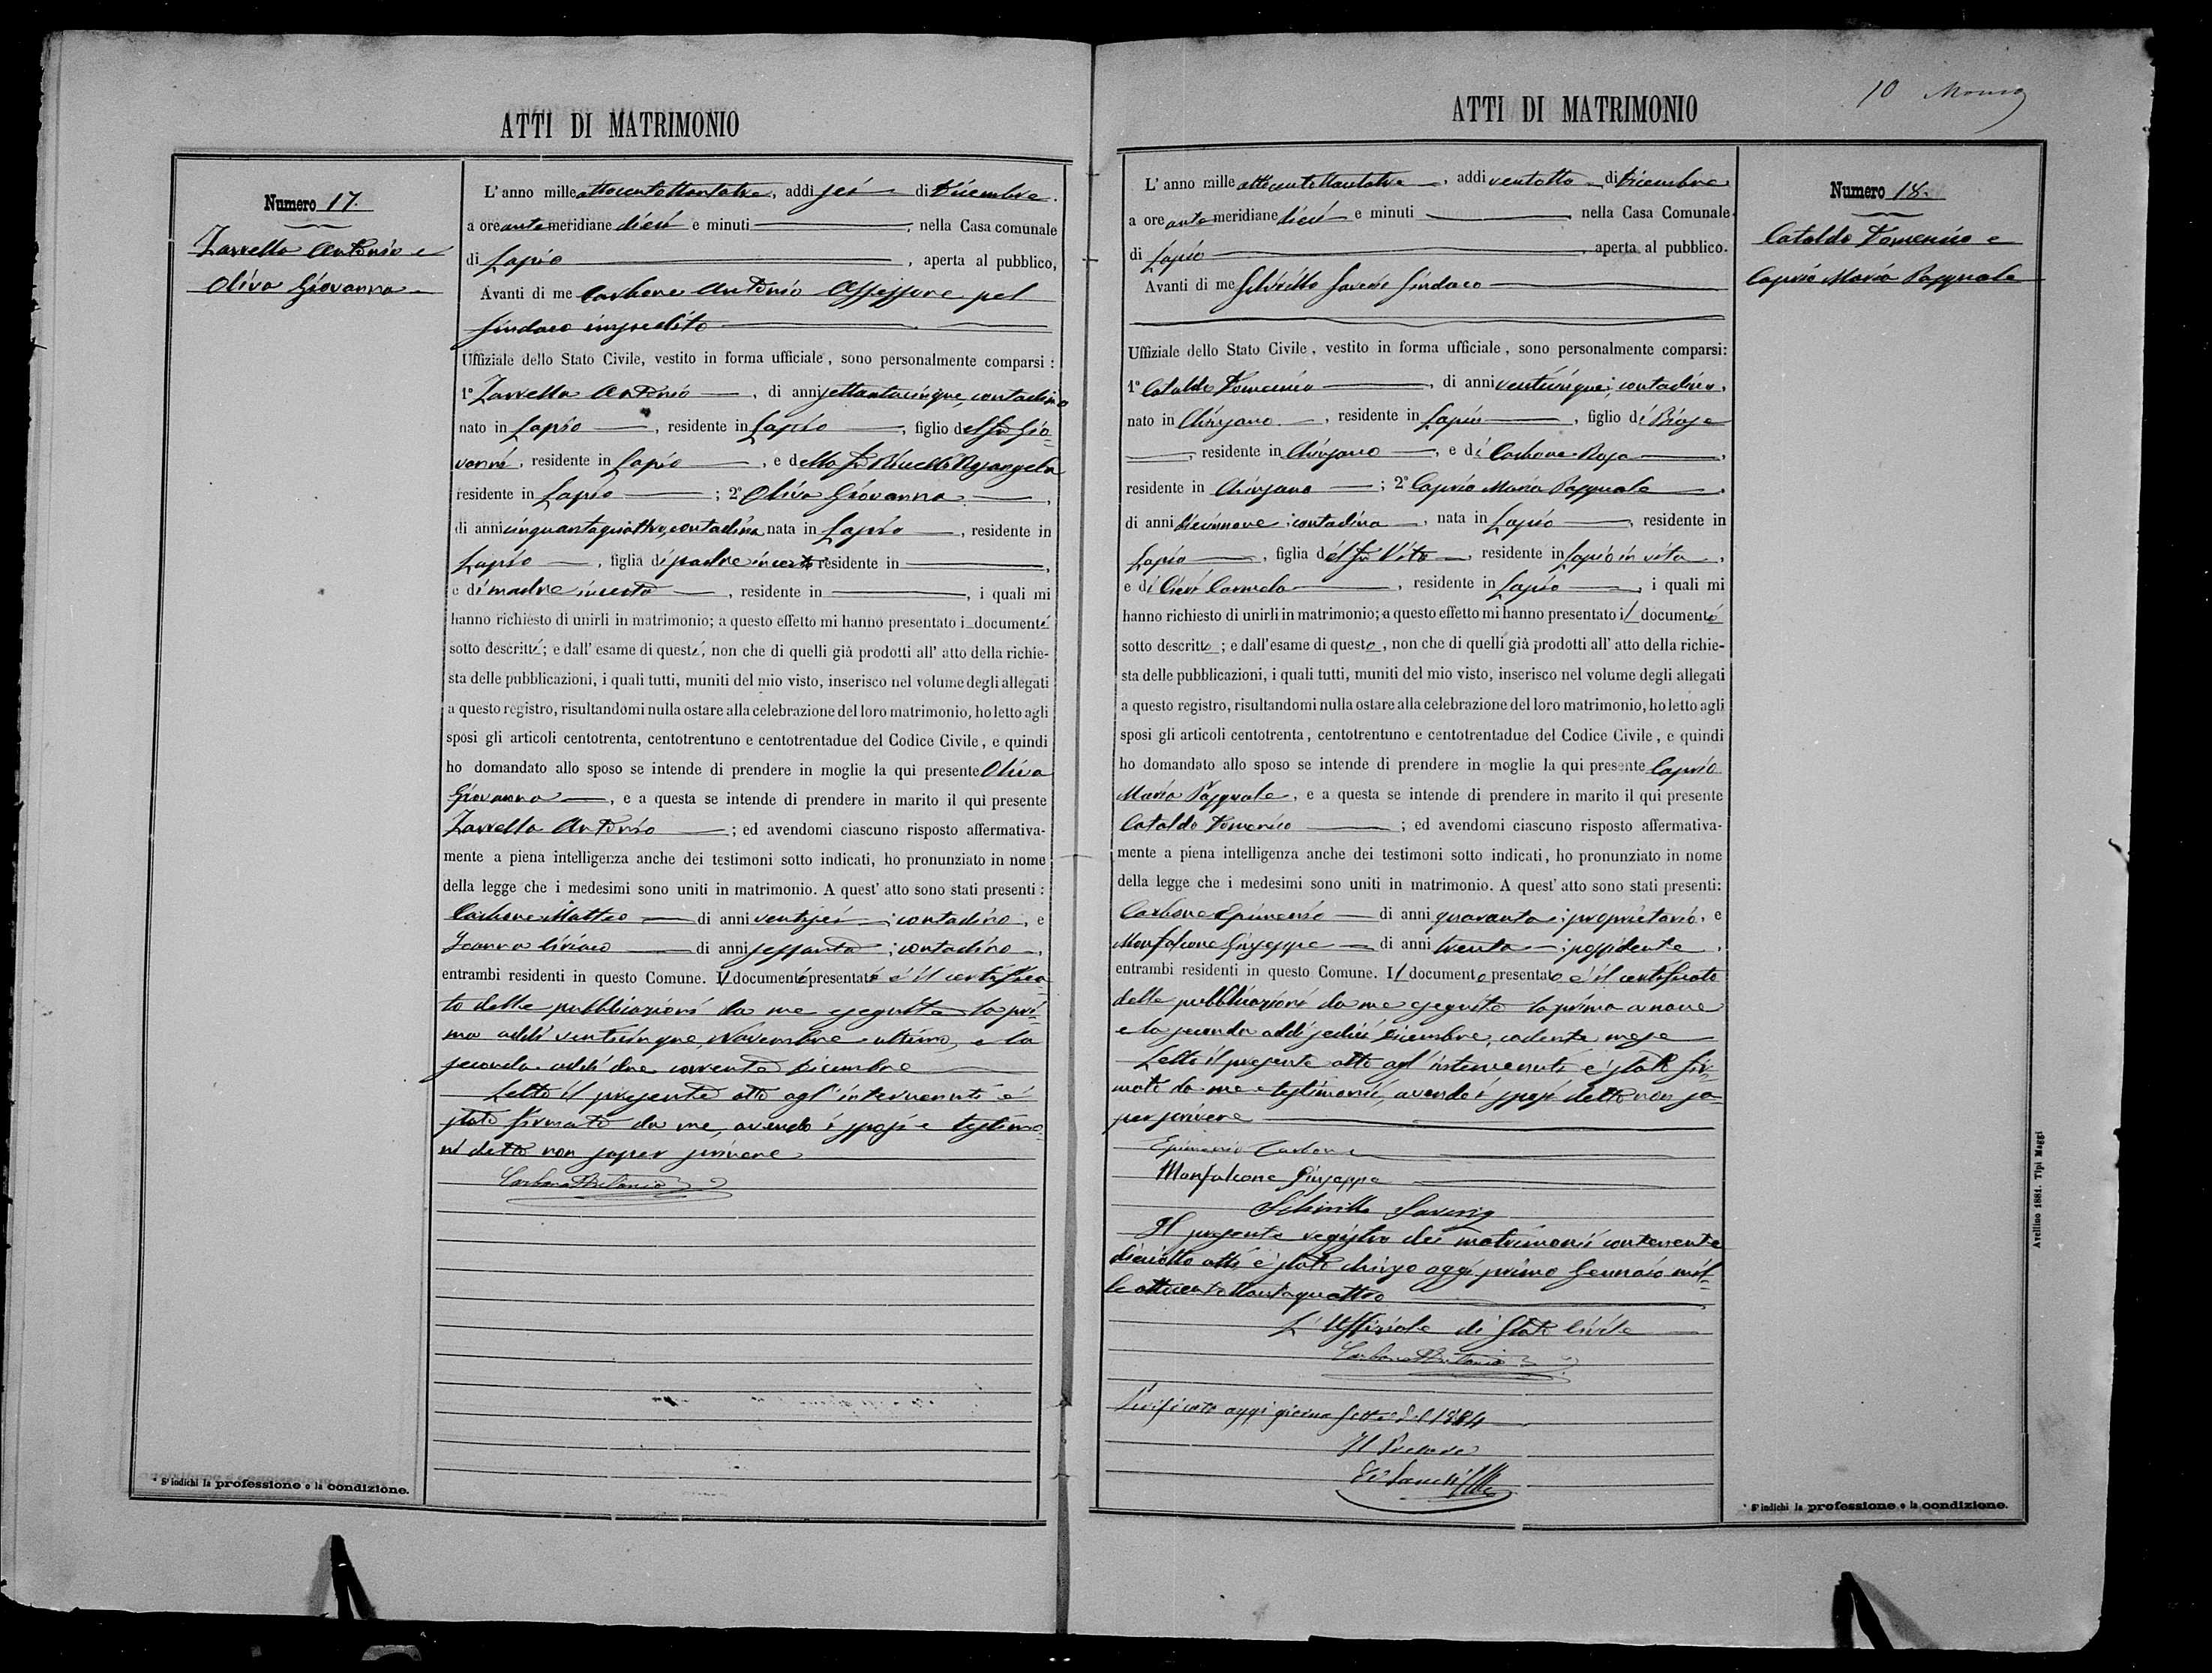 ATTI DI MATRIMONIO
Numero 17.
Zarrella Antonio e
Oliva Giovanna
L'anno mille ottocentottantatre, addì sei di Dicembre.
a ore antemeridiane dieci e minuti, nella Casa comunale
di Lapio, aperta al pubblico,
Avanti di me Carbone Antonio Assessore pel
Sindaco impedito
Uffiziale dello Stato Civile, vestito in forma ufficiale, sono personalmente comparsi:
1° Zarrella Antonio, di anni settantacinque, contadino
nato in Lapio, residente in Lapio, figlio del fu Gio-
vanni, residente in Lapio, e della fu Rosangela
residente in Lapio; 2° Oliva Giovanna,
di anni cinquantaquattro, contadina nata in Lapio, residente in
Lapio, figlia di padre incerto residente in,
e di madre incerta, residente in, i quali mi
hanno richiesto di unirli in matrimonio; a questo effetto mi hanno presentato i documenti
sotto descritti; e dall'esame di questi, non che di quelli già prodotti all'atto della richie-
sta delle pubblicazioni, i quali tutti, muniti del mio visto, inserisco nel volume degli allegati
a questo registro, risultandomi nulla ostare alla celebrazione del loro matrimonio, ho letto agli
sposi gli articoli centotrenta, centotrentuno e centotrentadue del Codice Civile, e quindi
ho domandato allo sposo se intende di prendere in moglie la qui presente Oliva
Giovanna, e a questa se intende di prendere in marito il qui presente
Zarrella Antonio; ed avendomi ciascuno risposto affermativa-
mente a piena intelligenza anche dei testimoni sotto indicati, ho pronunziato in nome
della legge che i medesimi sono uniti in matrimonio. A quest'atto sono stati presenti:
Carbone Matteo di anni ventisei, contadino, e
Ciriaco di anni sessanta, contadino,
entrambi residenti in questo Comune. Il documento presentato è il certifica-
to delle pubblicazioni da me eseguite la pri-
ma addì venticinque Novembre ultimo, e la
seconda addì due corrente Dicembre
Letto il presente atto agl'intervenuti è
stato firmato da me, avendo i sposi e testimo-
ni detto non saper scrivere
Carbone Antonio
* S'indichi la professione o la condizione.
10
ATTI DI MATRIMONIO
Numero 18.
Cataldo Domenico e
Caprio Maria Pasquale
L'anno mille ottocentottantatre, addì ventotto di Dicembre
a ore antemeridiane dieci e minuti nella Casa Comunale
di Lapio, aperta al pubblico.
Avanti di me Schirillo Saverio Sindaco
Uffiziale dello Stato Civile, vestito in forma ufficiale, sono personalmente comparsi:
1° Cataldo Domenico, di anni venticinque, contadino,
nato in Chiusano, residente in Lapio, figlio di Biase
, residente in Chiusano, e di Carbone Rosa,
residente in Chiusano; 2° Caprio Maria Pasquale,
di anni diciannove, contadina, nata in Lapio, residente in
Lapio, figlia del fu Vito, residente in Lapio in vita,
e di Carmela, residente in Lapio, i quali mi
hanno richiesto di unirli in matrimonio; a questo effetto mi hanno presentato il documento
sotto descritto; e dall'esame di questo, non che di quelli già prodotti all'atto della richie-
sta delle pubblicazioni, i quali tutti, muniti del mio visto, inserisco nel volume degli allegati
a questo registro, risultandomi nulla ostare alla celebrazione del loro matrimonio, ho letto agli
sposi gli articoli centotrenta, centotrentuno e centotrentadue del Codice Civile, e quindi
ho domandato allo sposo se intende di prendere in moglie la qui presente Caprio
Maria Pasquale, e a questa se intende di prendere in marito il qui presente
Cataldo Domenico; ed avendomi ciascuno risposto affermativa-
mente a piena intelligenza anche dei testimoni sotto indicati, ho pronunziato in nome
della legge che i medesimi sono uniti in matrimonio. A quest'atto sono stati presenti:
Carbone Epimenio di anni quaranta, proprietario, e
Monfalcone Giuseppe di anni trenta, possidente,
entrambi residenti in questo Comune. Il documento presentato è il certificato
delle pubblicazioni da me eseguite la prima a nove
e la seconda addì sedici Dicembre, cadente mese
Letto il presente atto agl'intervenuti è stato fir-
mato da me e testimonii, avendo i sposi detto non sa-
per scrivere
Epimenio Carbone
Monfalcone Giuseppe
Schirillo Saverio
Il presente registro dei matrimonii contenente
diciotto atti è stato chiuso oggi primo Gennaio mil-
le ottocentottantaquattro
L'Uffiziale di Stato Civile
Carbone Antonio
Verificato oggi giorno sette del 1884
Il Pretore
Avellino 1881. Tipi Maggi
* S'indichi la professione o la condizione.